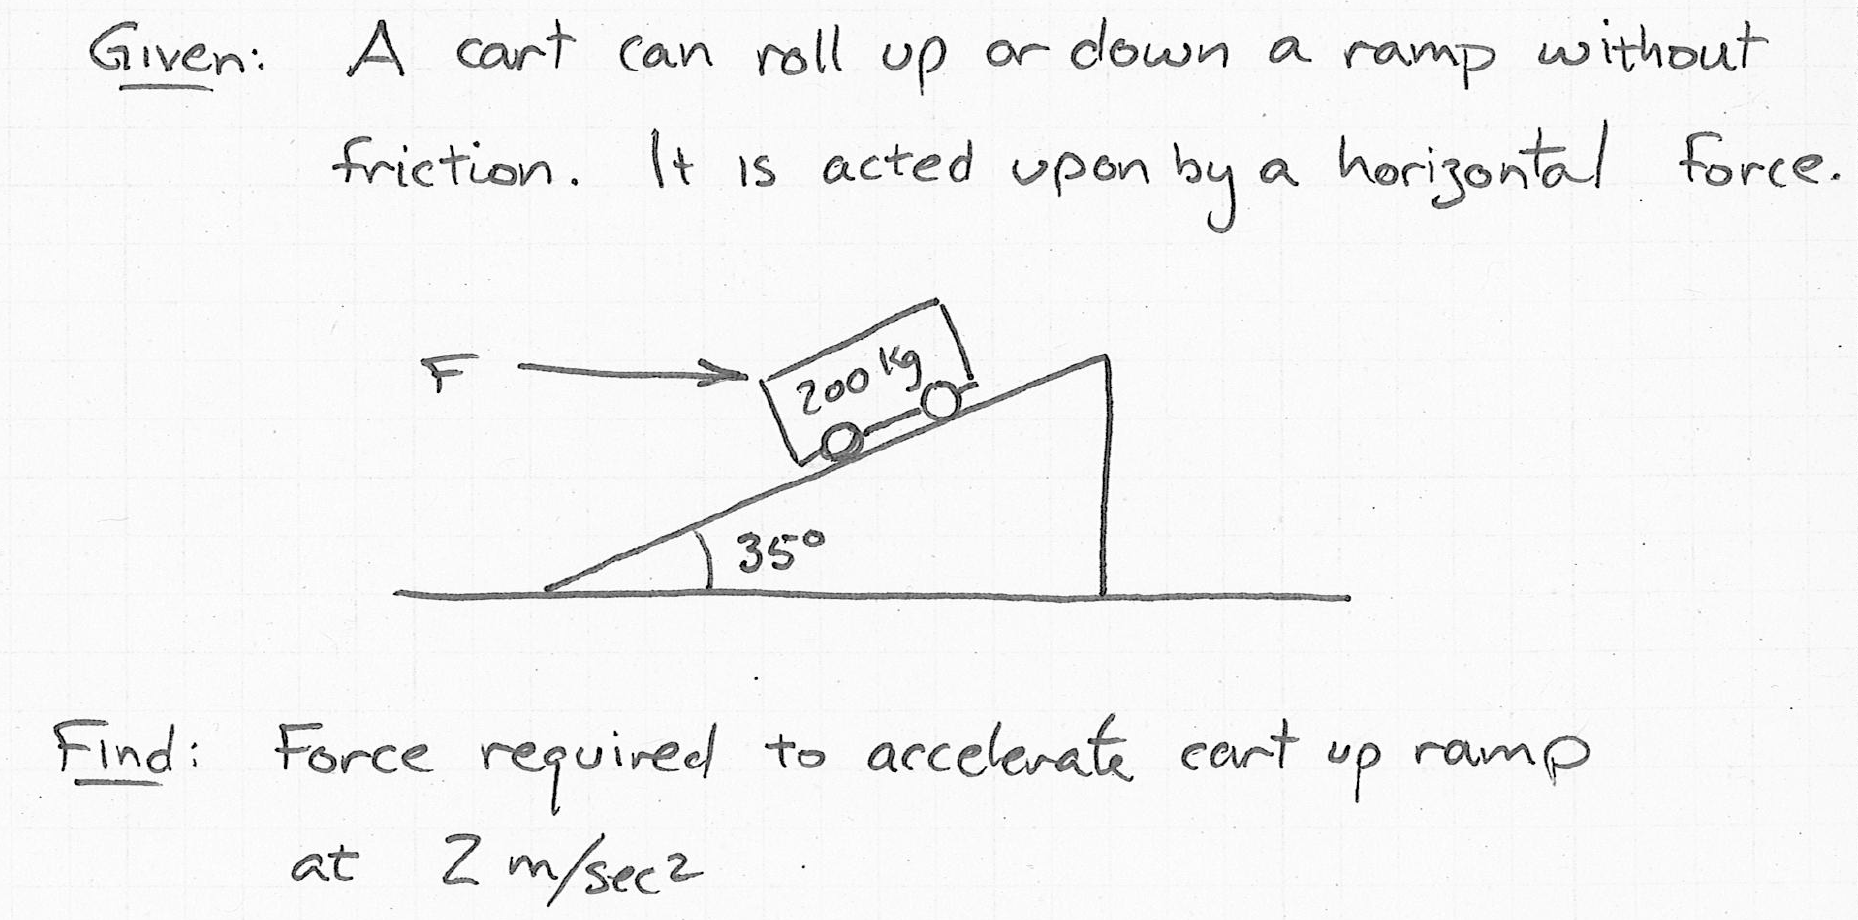 Given: A cart can roll up or down a ramp without
friction. It is acted upon by a horizontal force.
F
200 kg
35°
Find: Force required to accelerate cart up ramp
at 2 m/sec2